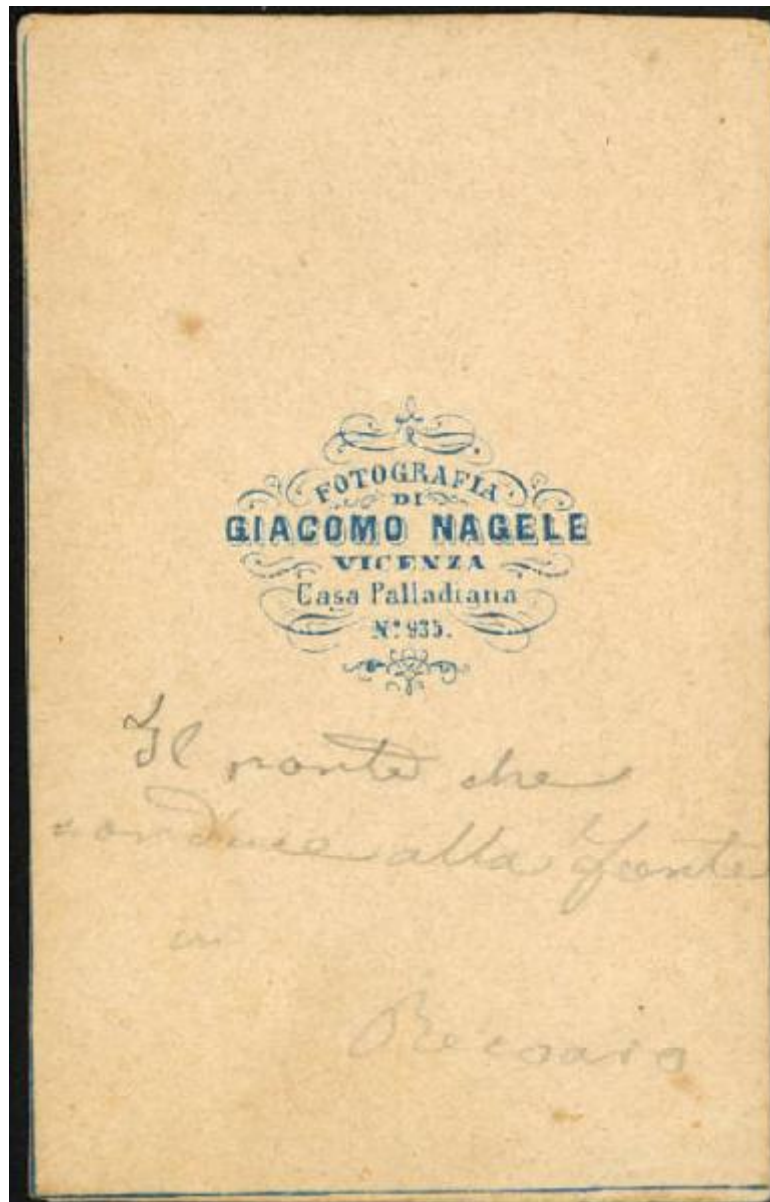 FOTOGRAFIA
DI
GIACOMO NAGELE
VICENZA
Casa Palladiana
N.° 935.
Il ponte che
conduce alla Fonte
in
Recoaro